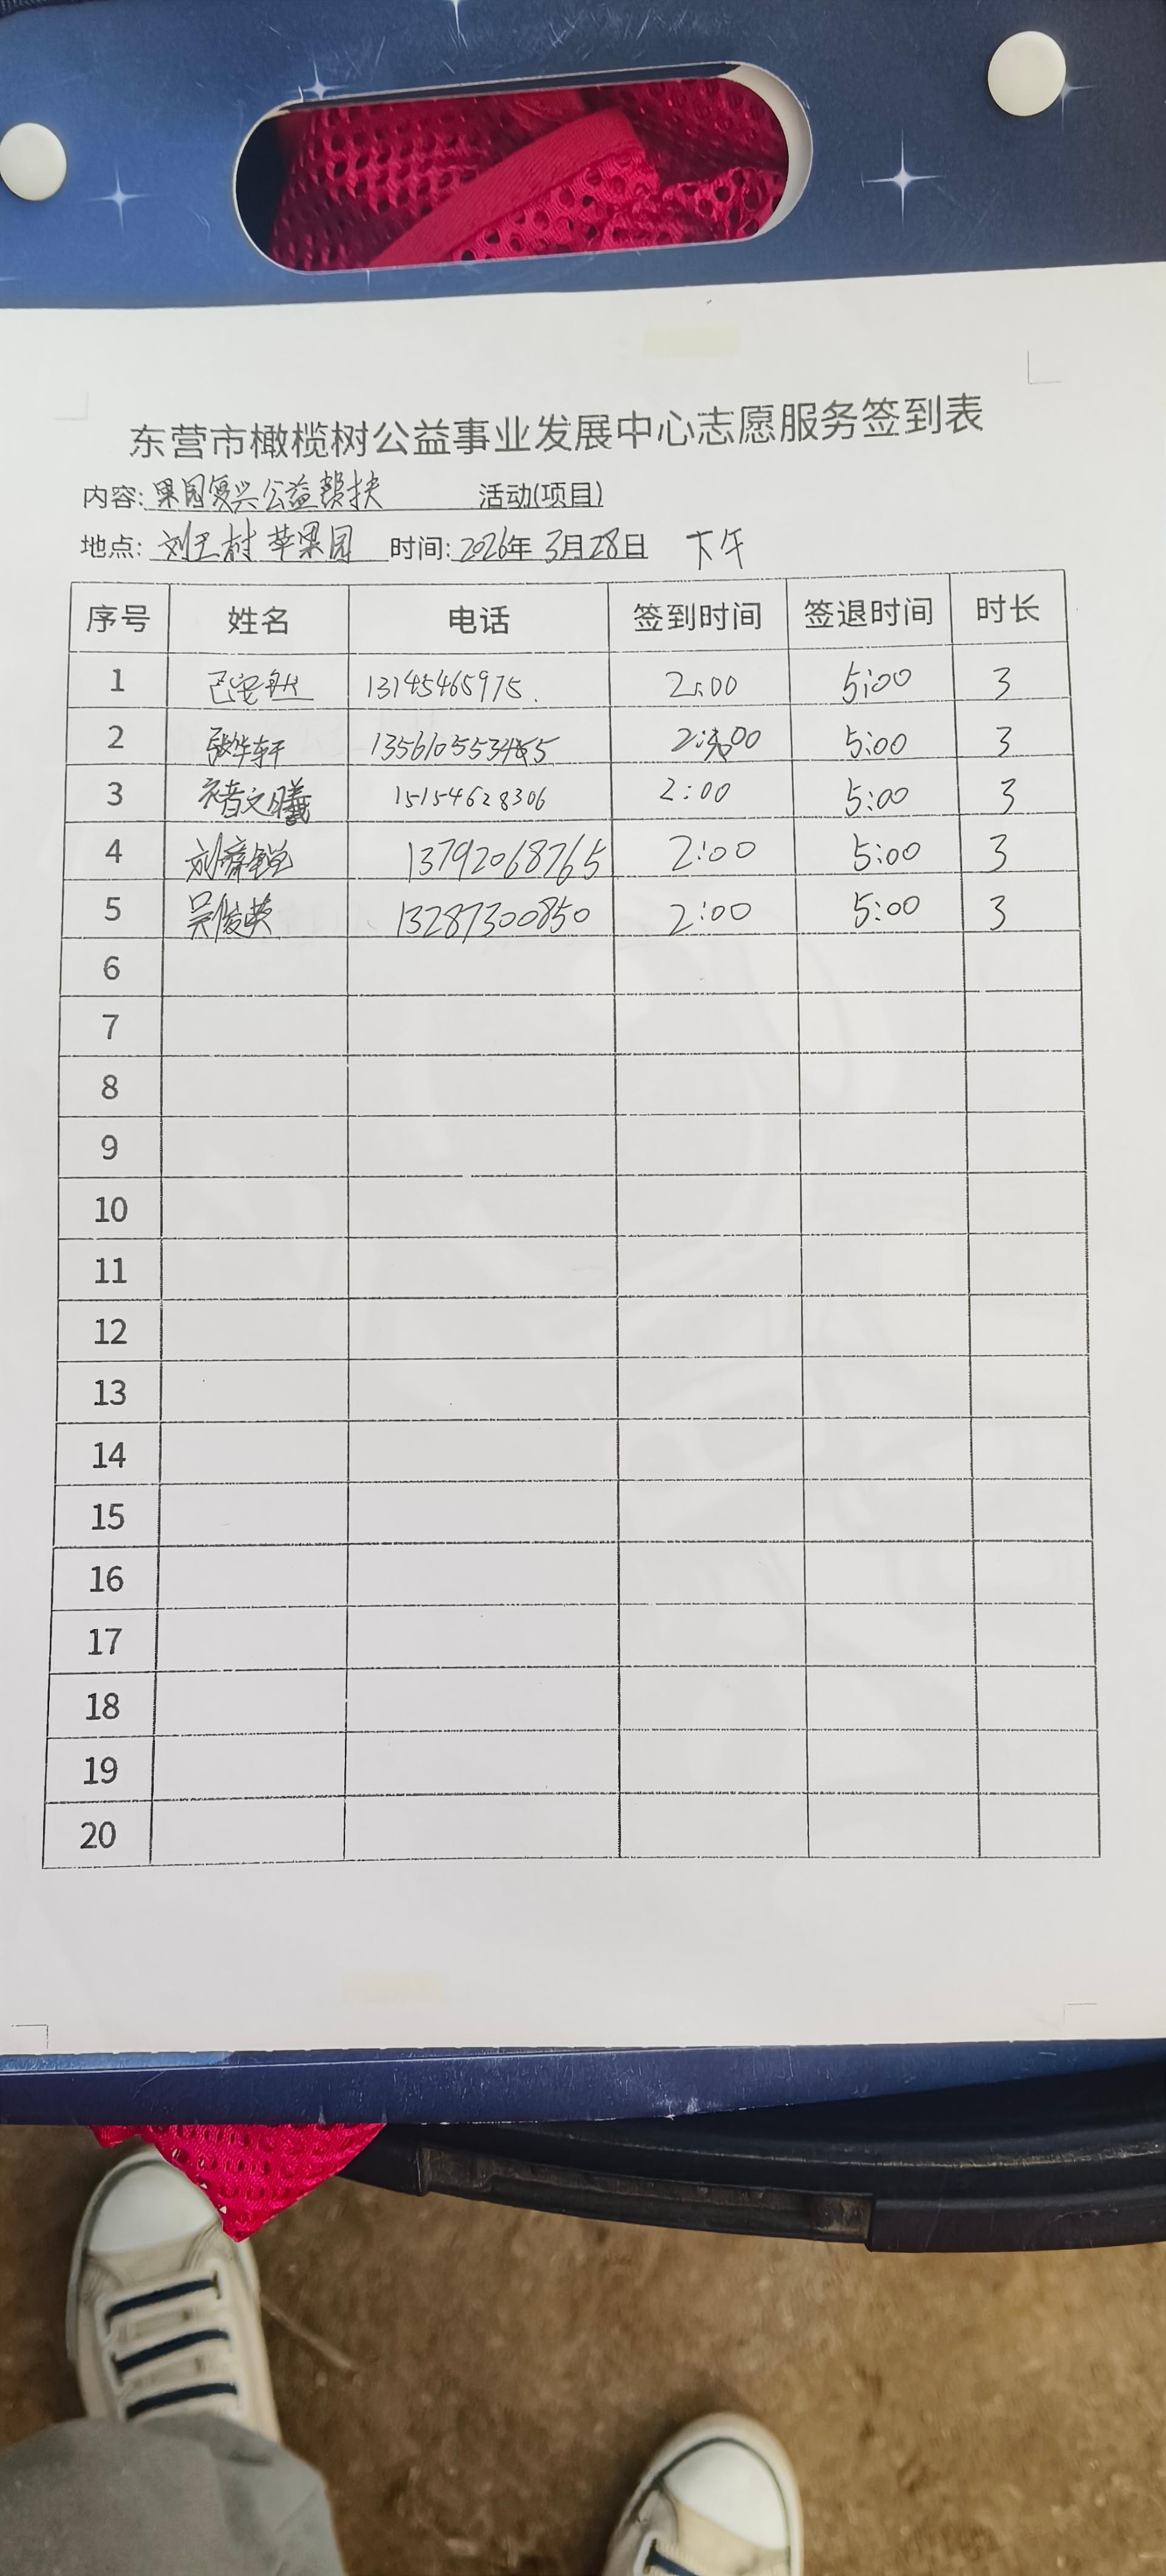 东营市橄榄树公益事业发展中心志愿服务签到表
内容: 果园复兴公益帮扶 活动(项目)
地点: 刘王村 苹果园 时间: 2026年 3月28日 下午
序号 姓名 电话 签到时间 签退时间 时长
1 13145465975. 2:00 5:00 3
2 张华轩 2:00 5:00 3
3 文曦 15154628306 2:00 5:00 3
4 刘 13792068765 2:00 5:00 3
5 吴俊英 13287300850 2:00 5:00 3
6
7
8
9
10
11
12
13
14
15
16
17
18
19
20